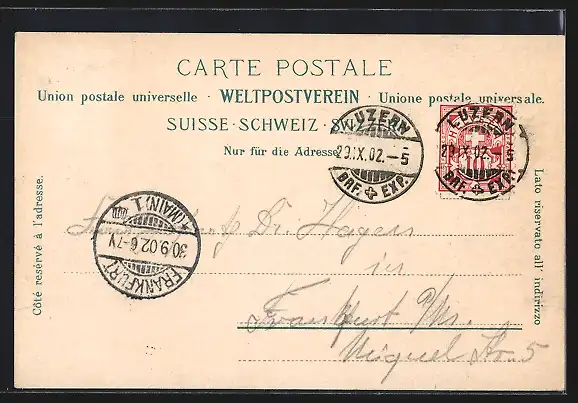 CARTE POSTALE
Union postale universelle · WELTPOSTVEREIN · Unione postale universale.
SUISSE · SCHWEIZ ·
Nur für die Adresse
LUZERN
29.IX.02.–5
BRF. EXP.
LUZERN
29.IX.02. 5
BRF. EXP.
10
Côté reservé à l'adresse.
Lato riservato all' indirizzo
FRANKFURT (MAIN) 1.
30.9.02.6-7V.
Dr. Hagen
in
Frankfurt a/M.
Miquel Str. 5